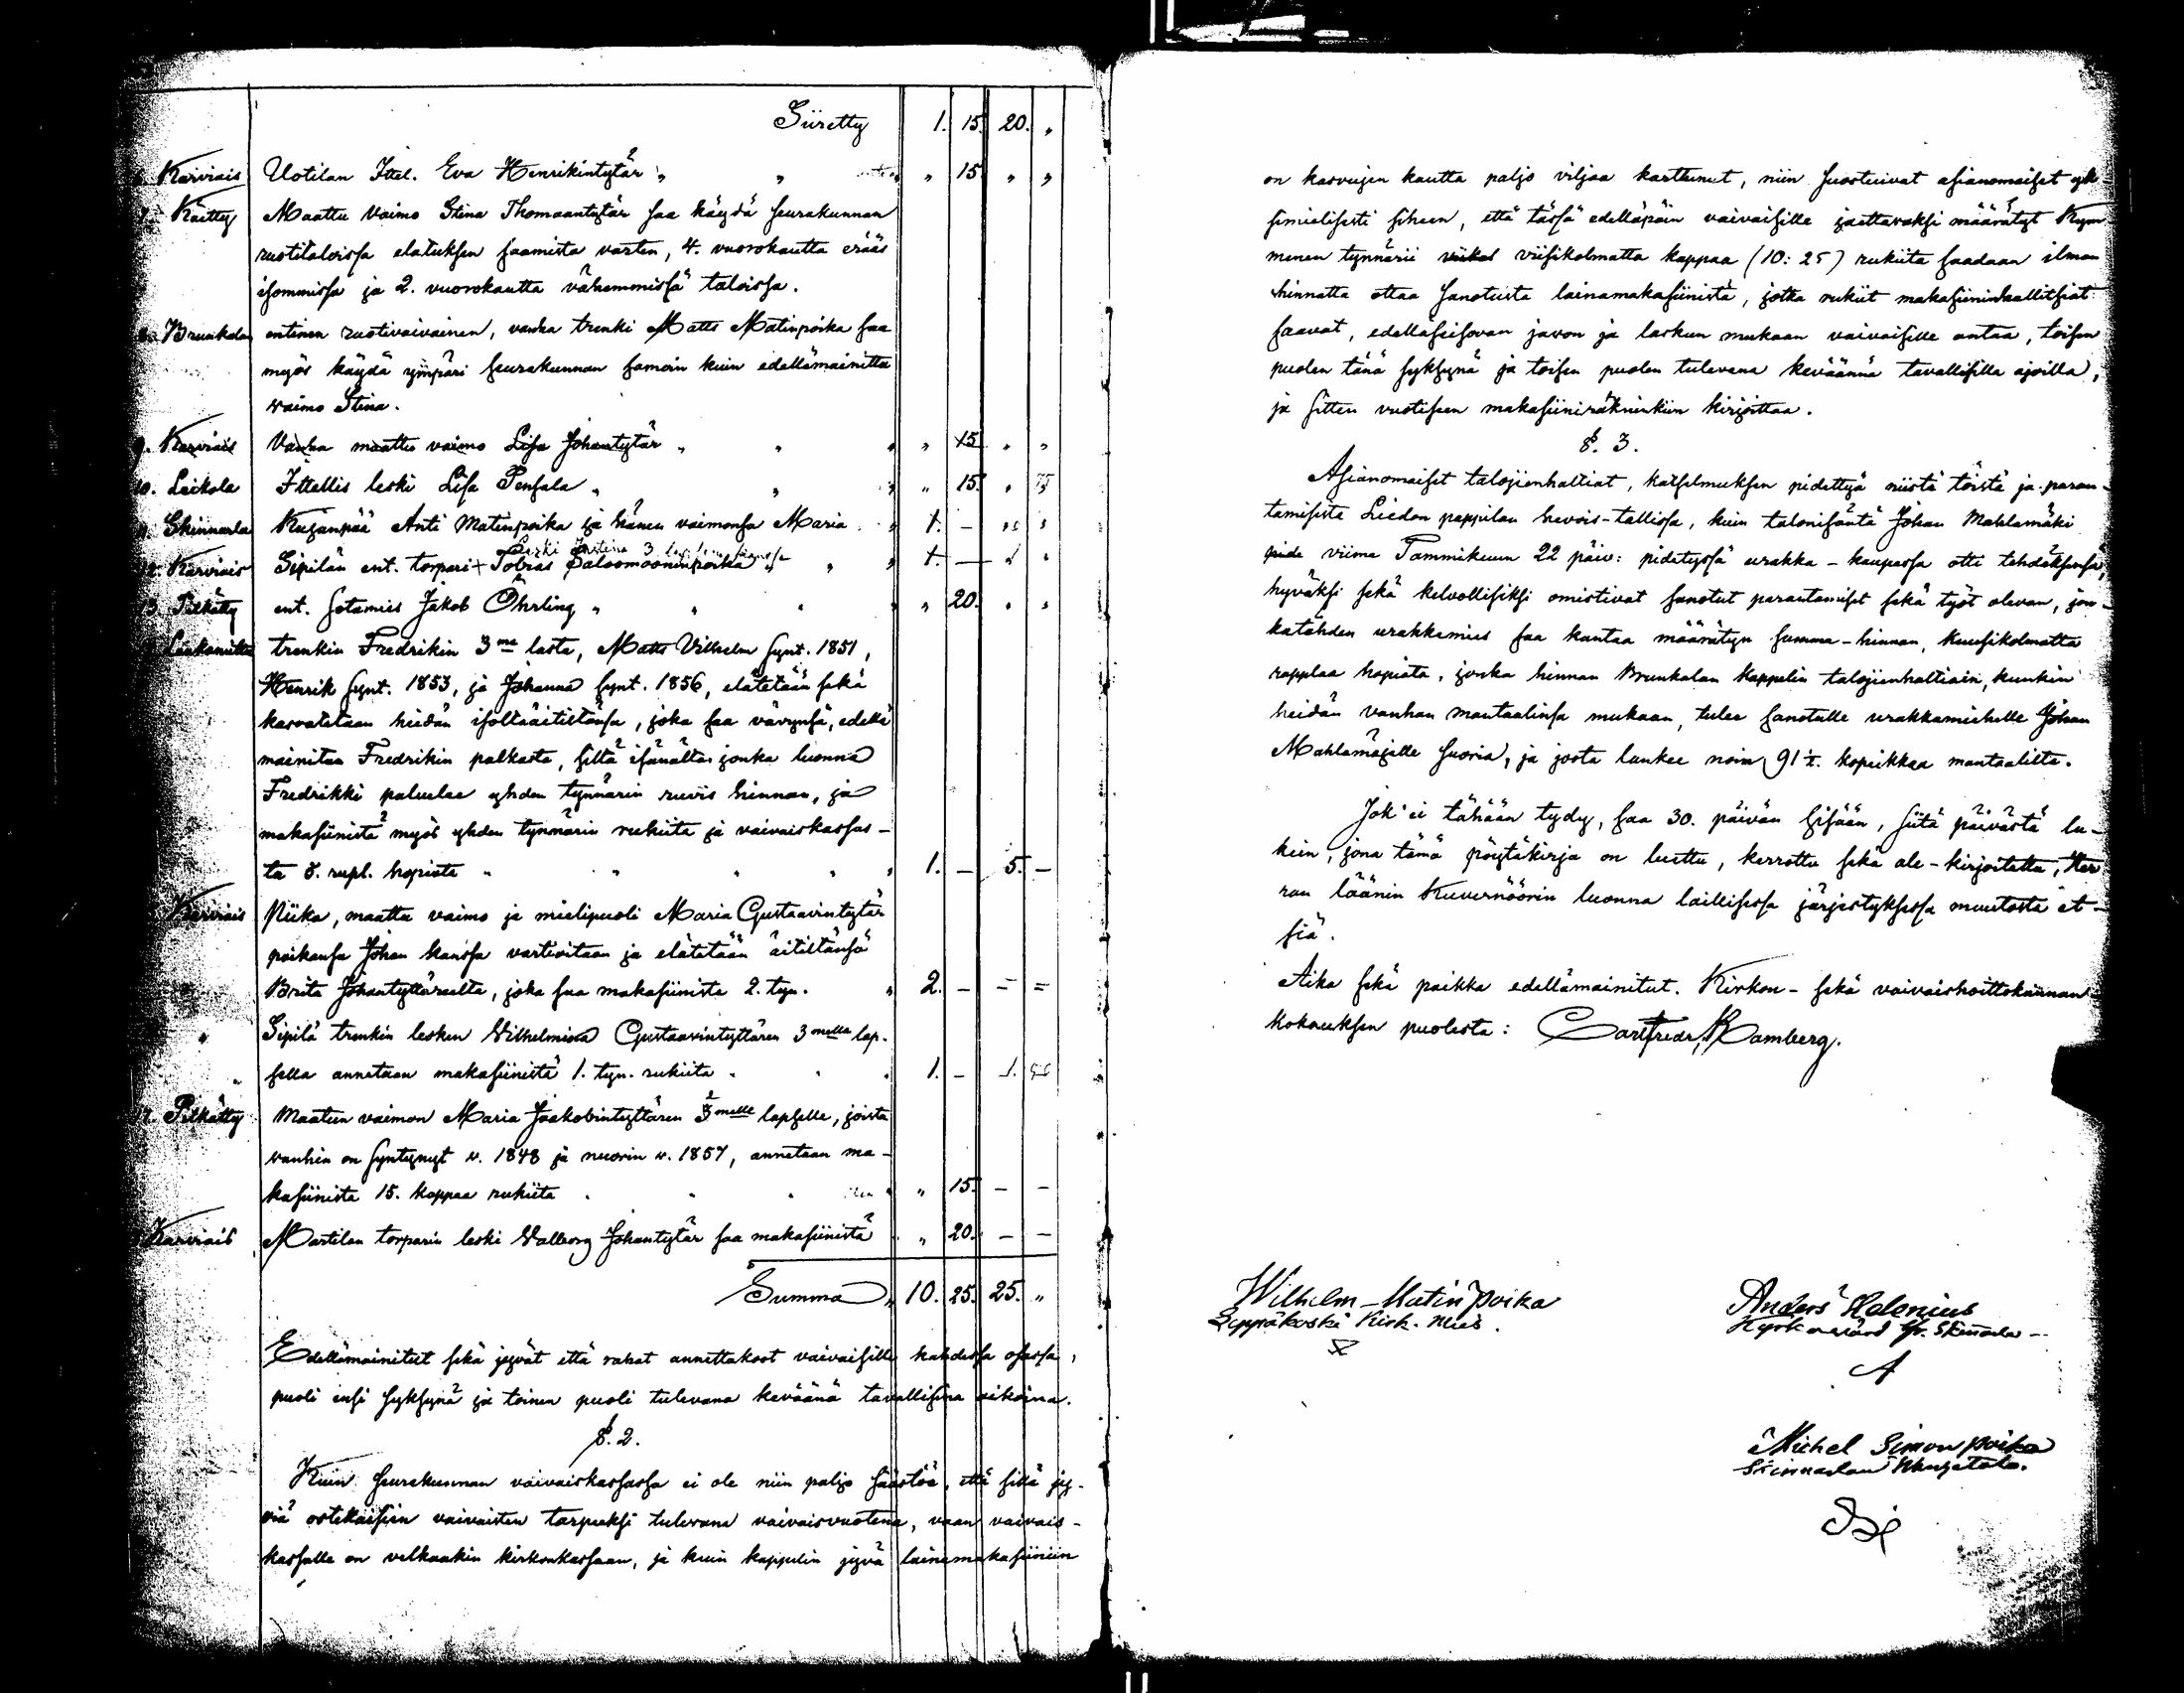 Siiretty 1. 15. 20. „
Karviais Uotilan Ittel. Eva Henrikintytär „ „ „ 15. „ „
7. Käitty Maattu vaimo Stina Thomaantytär saa käydä seurakunnan
ruotitaloissa elatuksen saamista varten, 4. vuorokautta erääs
isommissa ja 2. vuorokautta vähemmissä taloissa.
8. Brunkala entinen ruotivaivainen, vanha trenki Matts Matinpoika saa
myös käydä ympäri seurakunnan samoin kuin edellämainittu
waimo Stina.
9. Karviais Vanha maattu vaimo Lisa Johantytär „ „ „ „ 15 „ „
10. Leikola Ittellis leski Lisa Pensala „ „ „ „ 15. „ 75
11. Skinnarla Kujanpää Anti Matinpoika ja hänen vaimonsa Maria „ 1. – „ „
Leski 3 lapsen kanssa
12. Karviais Sipilän ent. torpari + Tobias Saloomooninpoika „ „ „ 1. – „ „
13. Pitkätty ent. sotamies Jakob Öhrling „ „ „ „ „ 20. „ „
Laukamitta trenkin Fredrikin 3me lasta, Matts Vilhelm synt. 1851,
Henrik synt. 1853, ja Johanna synt. 1856, elätetään sekä
kasvatetaan heidän isoltaäitiltänsä, joka saa vävynsä, edellä
mainitun Fredrikin palkasta, siltä isänältä jonka luonna
Fredrikki palvelee yhden tynnärin ruvis hinnan, ja
makasiinista myös yhden tynnärin rukiita ja vaivaiskassas-
ta 5. rupl. hopista „ „ „ „ „ 1. – 5. –
Karviais Piika, maattu vaimo ja mielipuoli Maria Gustaavintytär
poikansa Johan kanssa vartioitaan ja elätetään äitiltänsä
Brita Johantyttäreelta, joka saa makasiinista 2. tyn. „ 2. – – =
„ Sipilä trenkin lesken Vilhelmina Gustaavintyttären 3mella lap-
sella annetaan makasiinistä 1. tyn. rukiita „ „ „ 1. – 1.
17. Pitkätty Maatun vaimon Maria Jaakobintyttären 3melle lapselle, joista
vanhin on syntynyt v. 1848 ja nuorin v. 1857, annetaan ma-
kasiinista 15. kappaa rukiita „ „ „ „ 15. – –
Karviais Martilan torparin leski Valborg Johantytär saa makasiinistä „ 20. – –
Summa „ 10. 25. 25. „
Edellämainitut sekä jyvät että rahat annettakoot vaivaisille kahdessa osassa,
puoli ensi syksynä ja toinen puoli tulevana keväänä tavallisina aikoina.
§. 2.
Kuin seurakunnan vaivaiskassassa ei ole niin paljo säästöä, että sillä jy-
viä ostettaisiin vaivaisten tarpeeksi tulevana vaivaisvuotena, vaan vaivais-
kassalle on velkaakin kirkonkassaan, ja kuin kappelin jyvä lainamakasiiniin
on kasvujen kautta paljo viljaa karttunut, niin suostuivat asianomaiset yk-
simielisesti siheen, että tässä edelläpäin vaivaisille jaettavaksi määrätyt Kym-
menen tynnärii viisikolmatta kappaa (10: 25) rukiita saadaan ilman
hinnatta ottaa sanotusta lainamakasiinistä, jotka rukiit makasiininhallitsiat
saavat, edelläseisovan javon ja laskun mukaan vaivaisille antaa, toisen
puolen tänä syksynä ja toisen puolen tulevana keväännä tavallisilla ajoilla,
ja sitten vuotiseen makasiiniräkninkiin kirjoittaa.
§. 3.
Asianomaiset talojenhaltiat, katselmuksen pidettyä niistä töistä ja paran-
tamisista Liedon pappilan hevois-tallissa, kuin talonisäntä Johan Mahlamäki
pide viime Tammikuun 22 päiv: pidetyssä urakka-kaupassa otti tehdäksensä,
hyväksi sekä kelvollisiksi omistivat sanotut parantamiset sekä työt olevan, jon-
katähden urakkamies saa kantaa määrätyn summa-hinnan, kuusikolmatta
rupplaa hopiata, jonka hinnan Brunkalan kappelin talojenhaltiain, kunkin
heidän vanhan mantaalinsa mukaan, tulee sanotulle urakkamiehelle Johan
Mahlamäjelle suoria, ja josta lankee noin 91 ½. kopeikkaa mantaalilta.
Jok' ei tähään tydy, saa 30. päivän sisään, siitä päivästä lu-
kein, jona tämä pöytäkirja on luettu, kerrottu sekä ale-kirjoitettu, Her-
ran läänin Kuvernöörin luonna laillisessa järjestyksessä muutosta et-
siä.
Aika sekä paikka edellämainitut. Kirkon- sekä vaivaishoittokunnan
kokouksen puolesta: Carl Fredr. Bamberg.
Wilhelm Matin poika
Seppäkoski Kirk. Mies.
Anders Helenius
Kyrkovärd fr. Skinnarla
A
Michel Simon poika
Skinnarlan